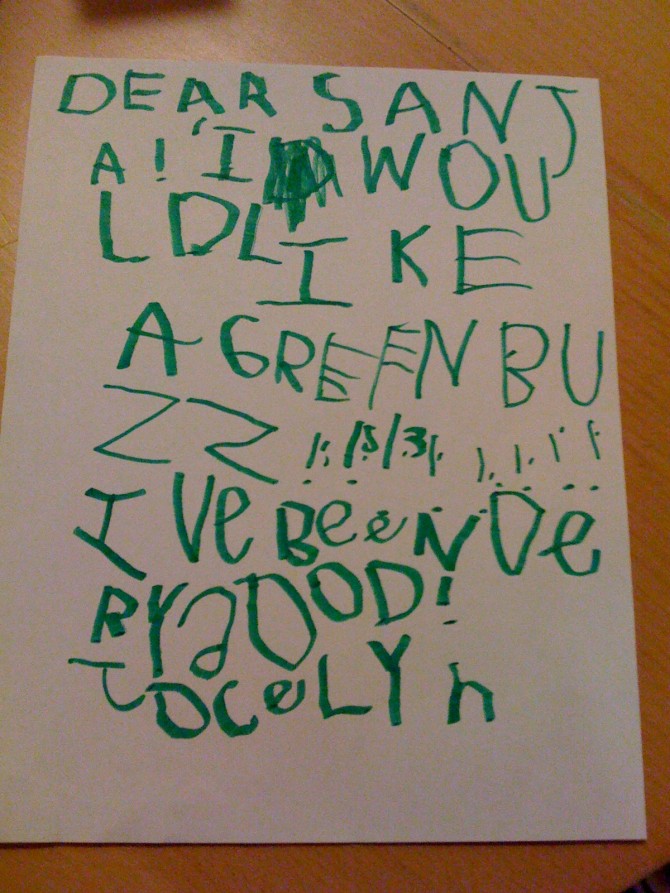 DEAR SANJ
A! I WOU
LDLIKE
A GREEN BU
ZZ !!!!!!!!
I Ve BeeN De
RY gOOD!
JOCeLYn